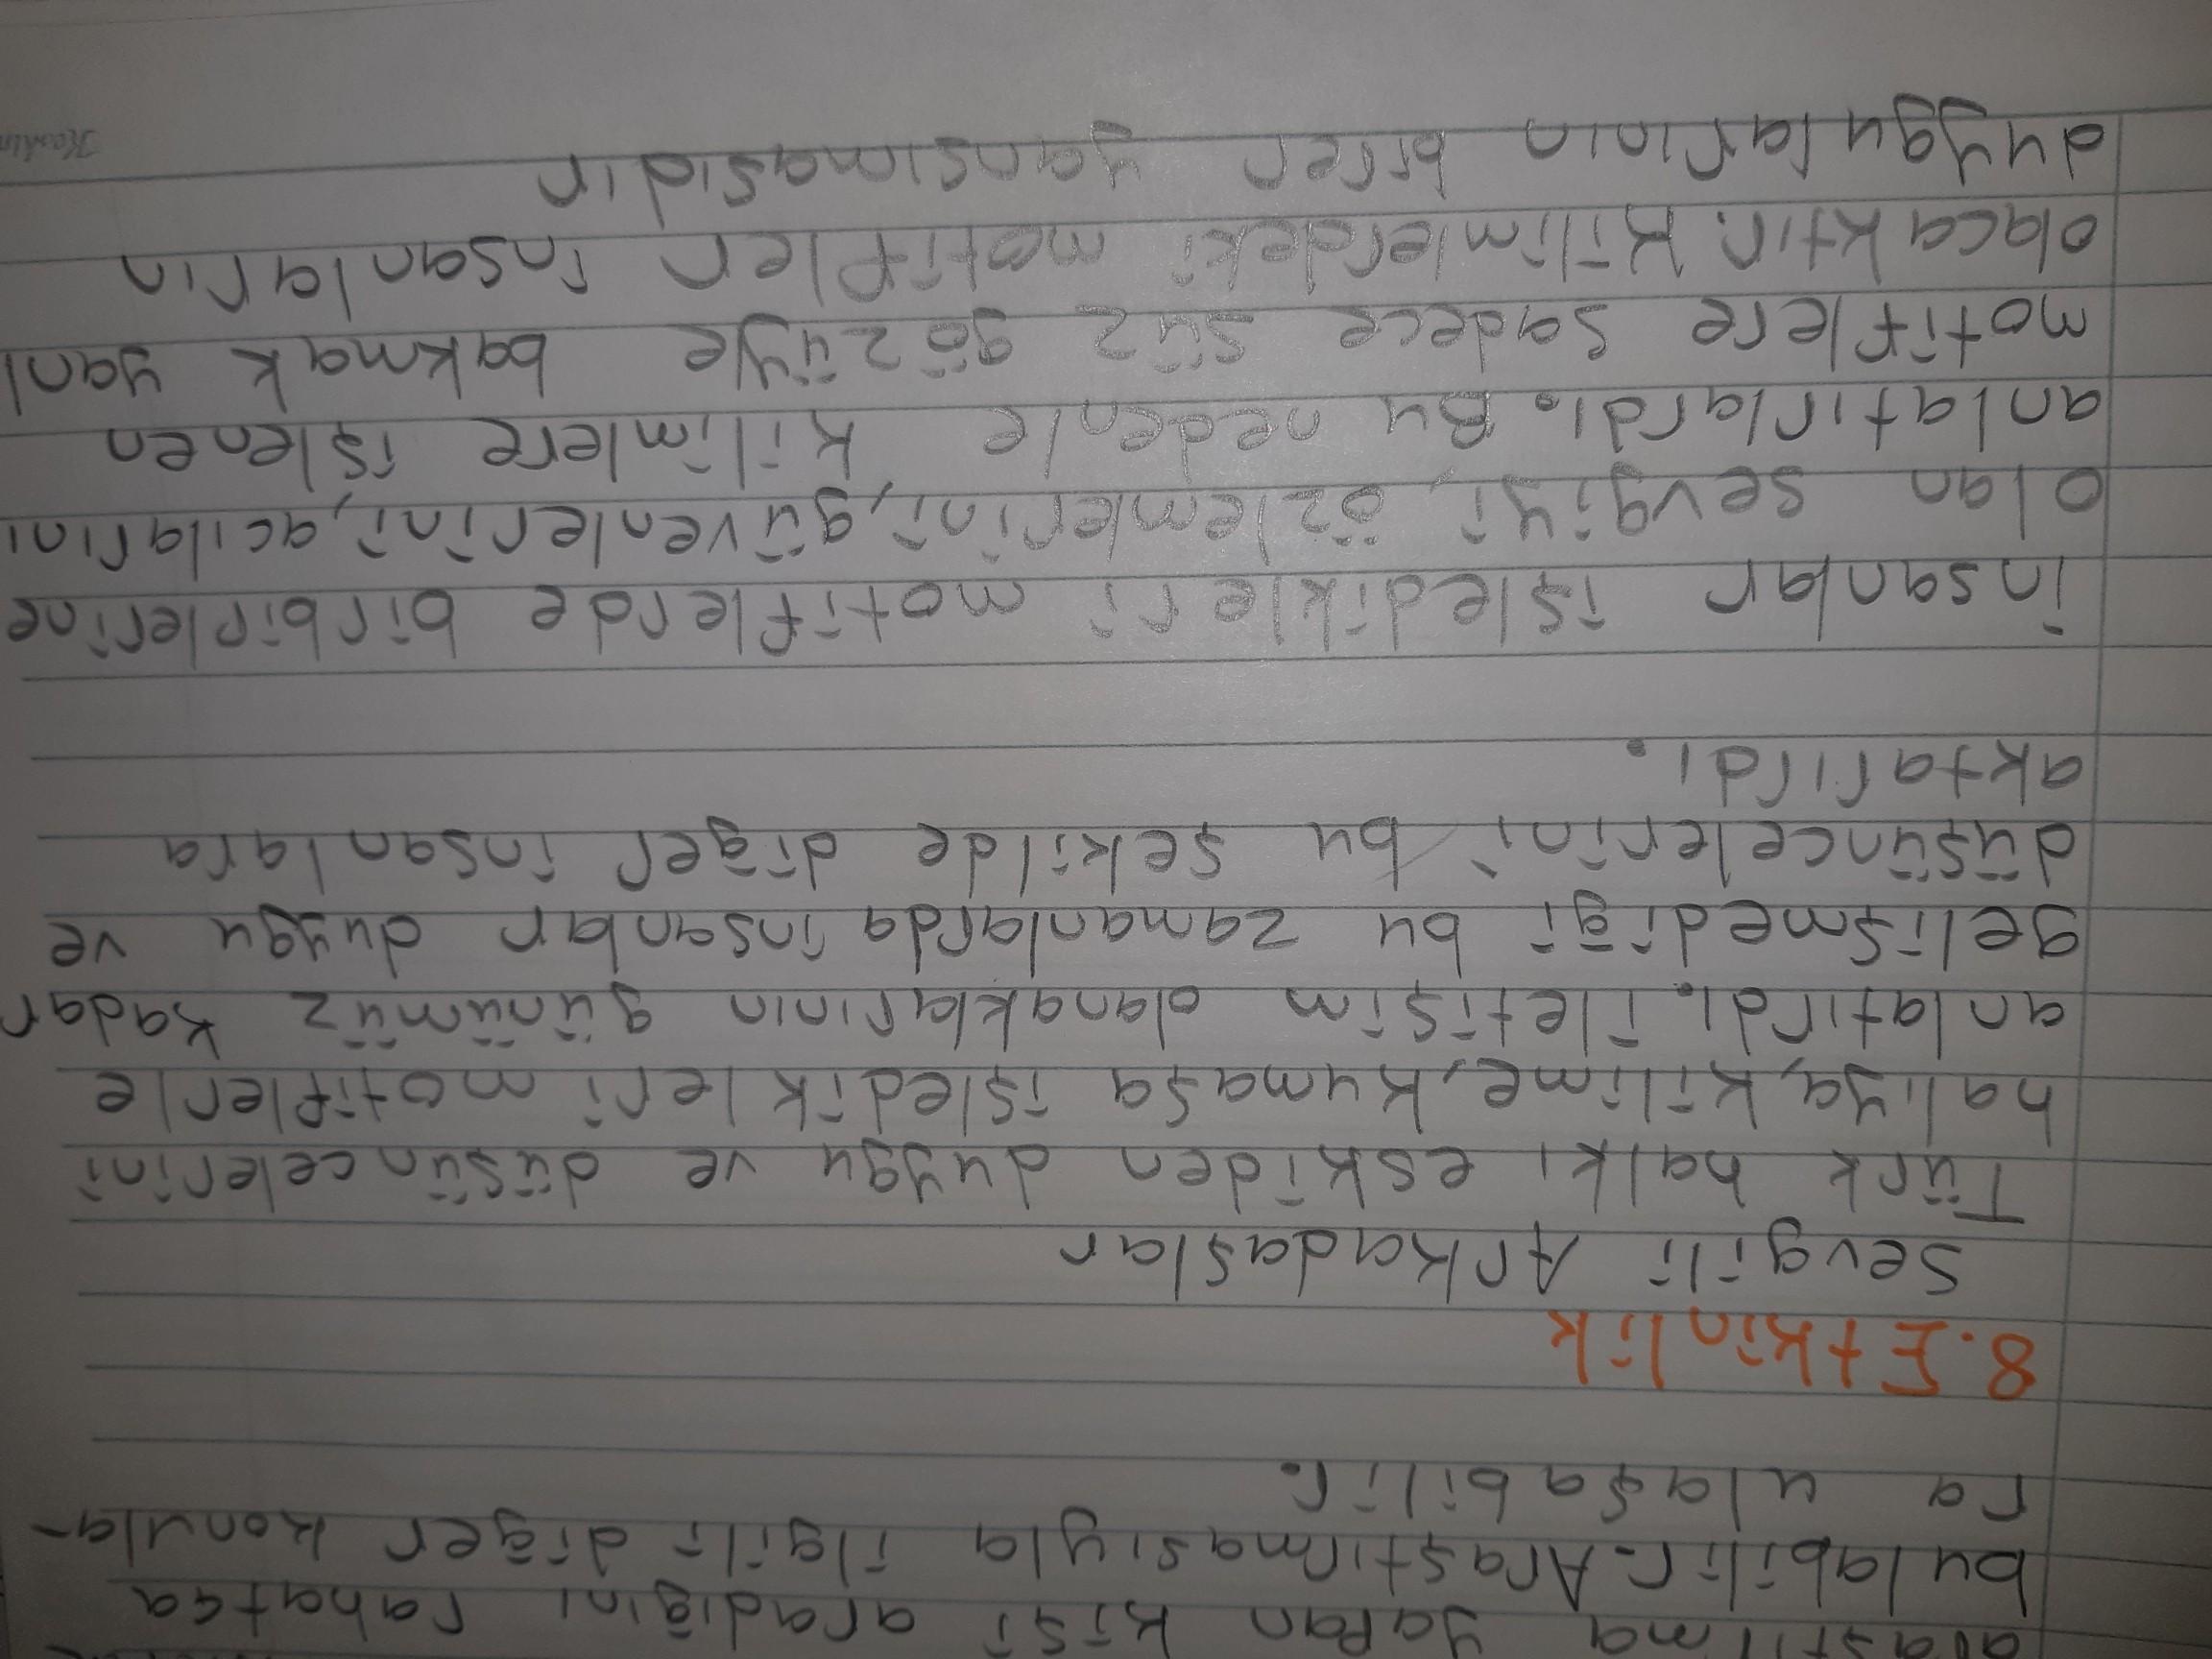 araştırma yapan kişi aradığını rahatça
bulabilir. Araştırmasıyla ilgili diğer konula-
ra ulaşabilir.
8. Etkinlik
Sevgili Arkadaşlar
Türk halkı eskiden duygu ve düşüncelerini
halıya, kilime, kumaşa işledikleri motiflerle
anlatırdı. İletişim olanaklarının günümüz kadar
gelişmediği bu zamanlarda insanlar duygu ve
düşüncelerini bu şekilde diğer insanlara
aktarırdı.
İnsanlar işledikleri motiflerde birbirlerine
olan sevgiyi, özlemlerini, güvenlerini, acılarını
anlatırlardı. Bu nedenle kilimlere işlenen
motiflere sadece süz gözüyle bakmak yanl
olacaktır. Kilimlerdeki motifler insanların
duygularının birer yansımasıdır